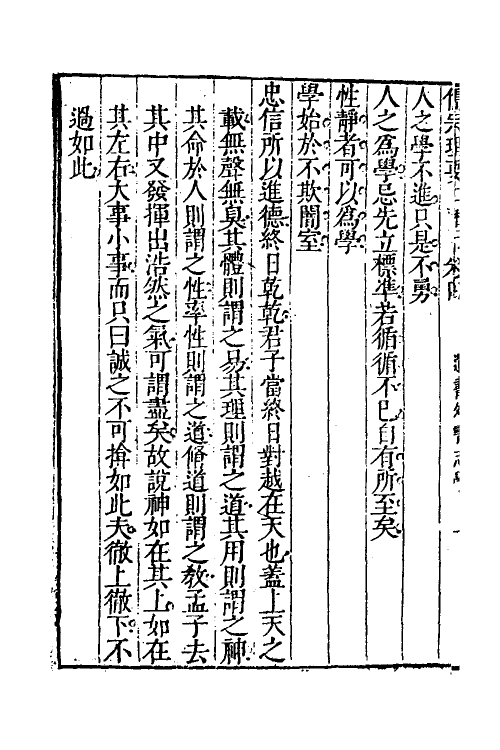 人之學不進只是不勇
人之爲學忌先立標準若循循不已自有所至矣
性靜者可以爲學
學始於不欺闇室
忠信所以進德終日乾乾君子當終日對越在天也蓋上天之
載無聲無臭其體則謂之易其理則謂之道其用則謂之神
其命於人則謂之性率性則謂之道脩道則謂之教孟子去
其中又發揮出浩然之氣可謂盡矣故說神如在其上如在
其左右大事小事而只曰誠之不可揜如此夫徹上徹下不
過如此